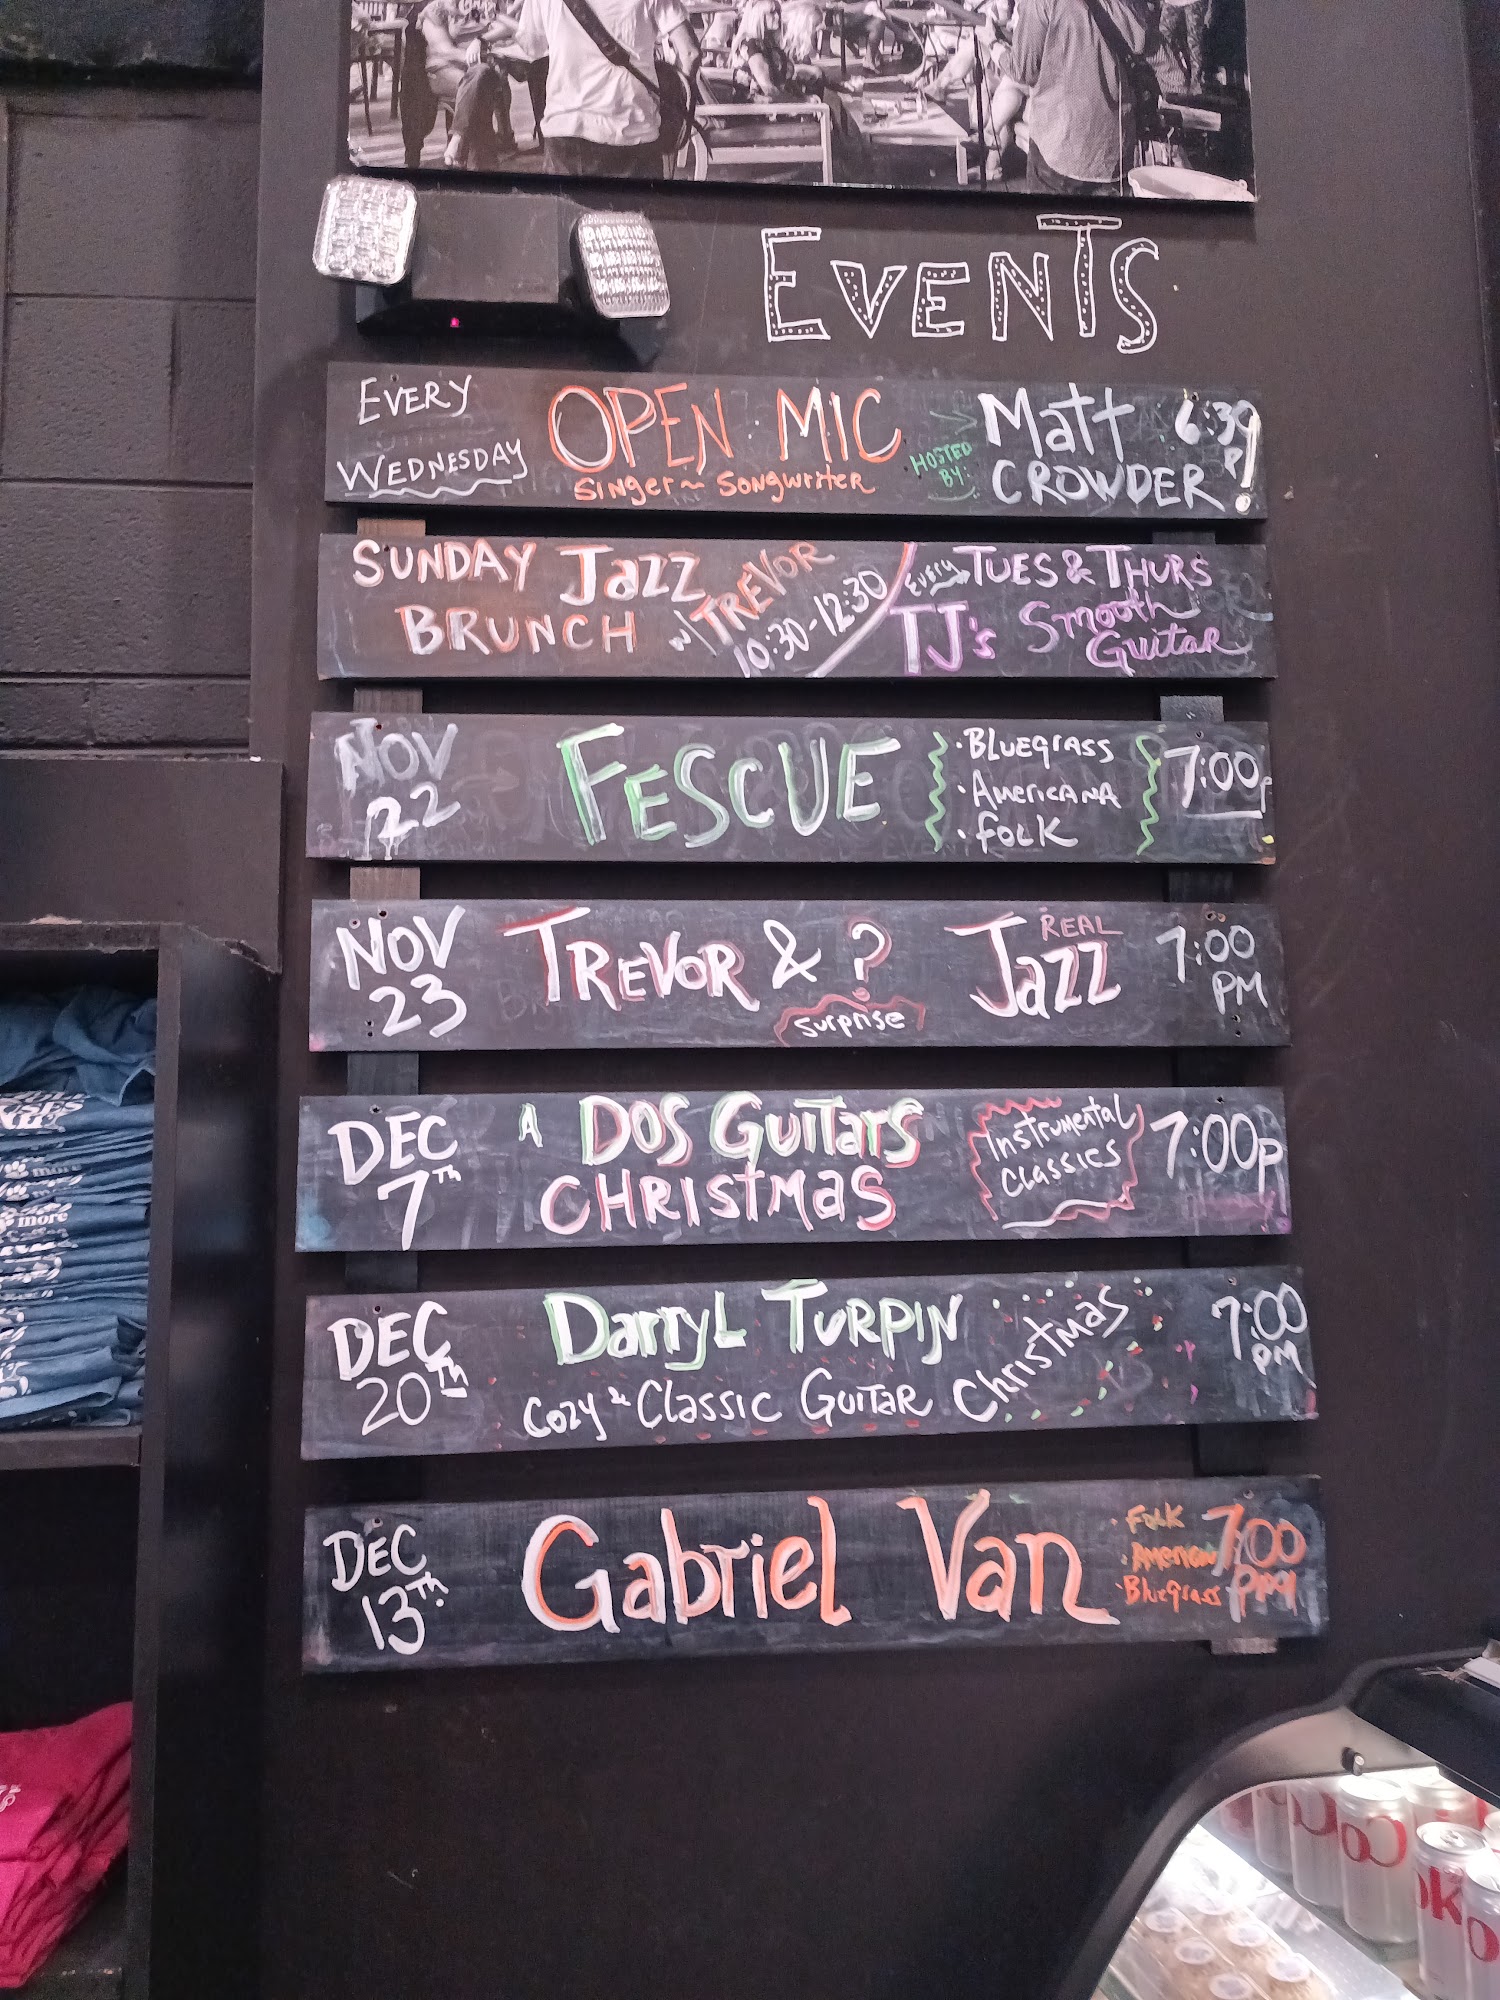 EVENTS
EVERY WEDNESDAY
OPEN MIC
Singer~Songwriter
HOSTED BY:
Matt CROWDER
6:30 P!
SUNDAY Jazz BRUNCH
w/ TREVOR
10:30-12:30
EVERY TUES & THURS
TJ's Smooth Guitar
NOV 22
FESCUE
· Bluegrass
· Americana
· Folk
7:00p
NOV 23
TREVOR & ?
Surprise
REAL Jazz
7:00 PM
DEC 7TH
A DOS Guitars
CHRISTMAS
Instrumental
Classics
7:00p
DEC 20TH
Darryl TURPIN
Cozy & Classic Guitar Christmas
7:00 PM
DEC 13TH.
Gabriel Van
· Folk
· American
· Bluegrass
7:00 PM
more
more
Co
ok